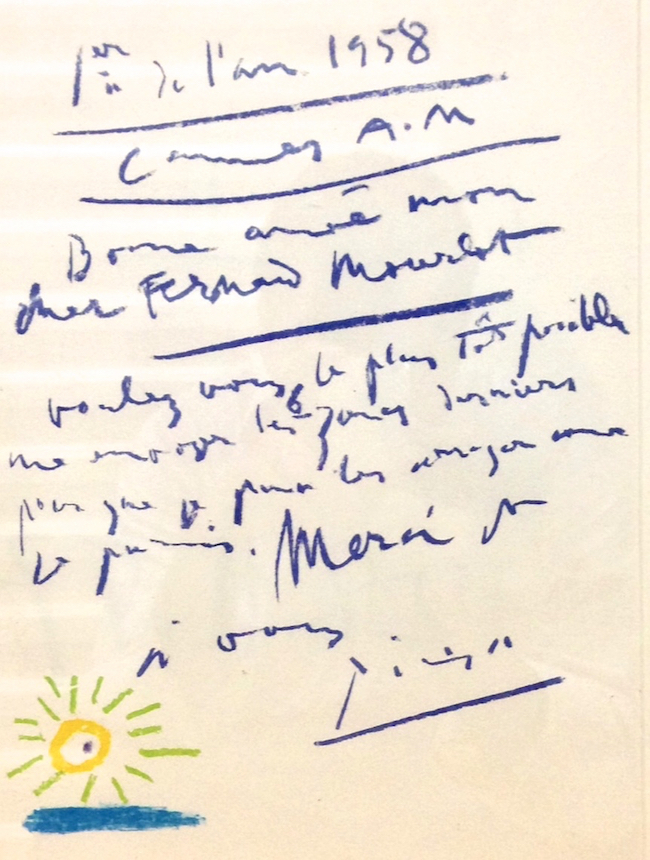 1er de l'an 1958
Cannes A.M
Bonne année mon
cher Fernand Mourlot
voulez vous le plus tôt possible
me envoyer les 6 zincs derniers
pour que je puisse les arranger
le
Merci
vous
Picasso